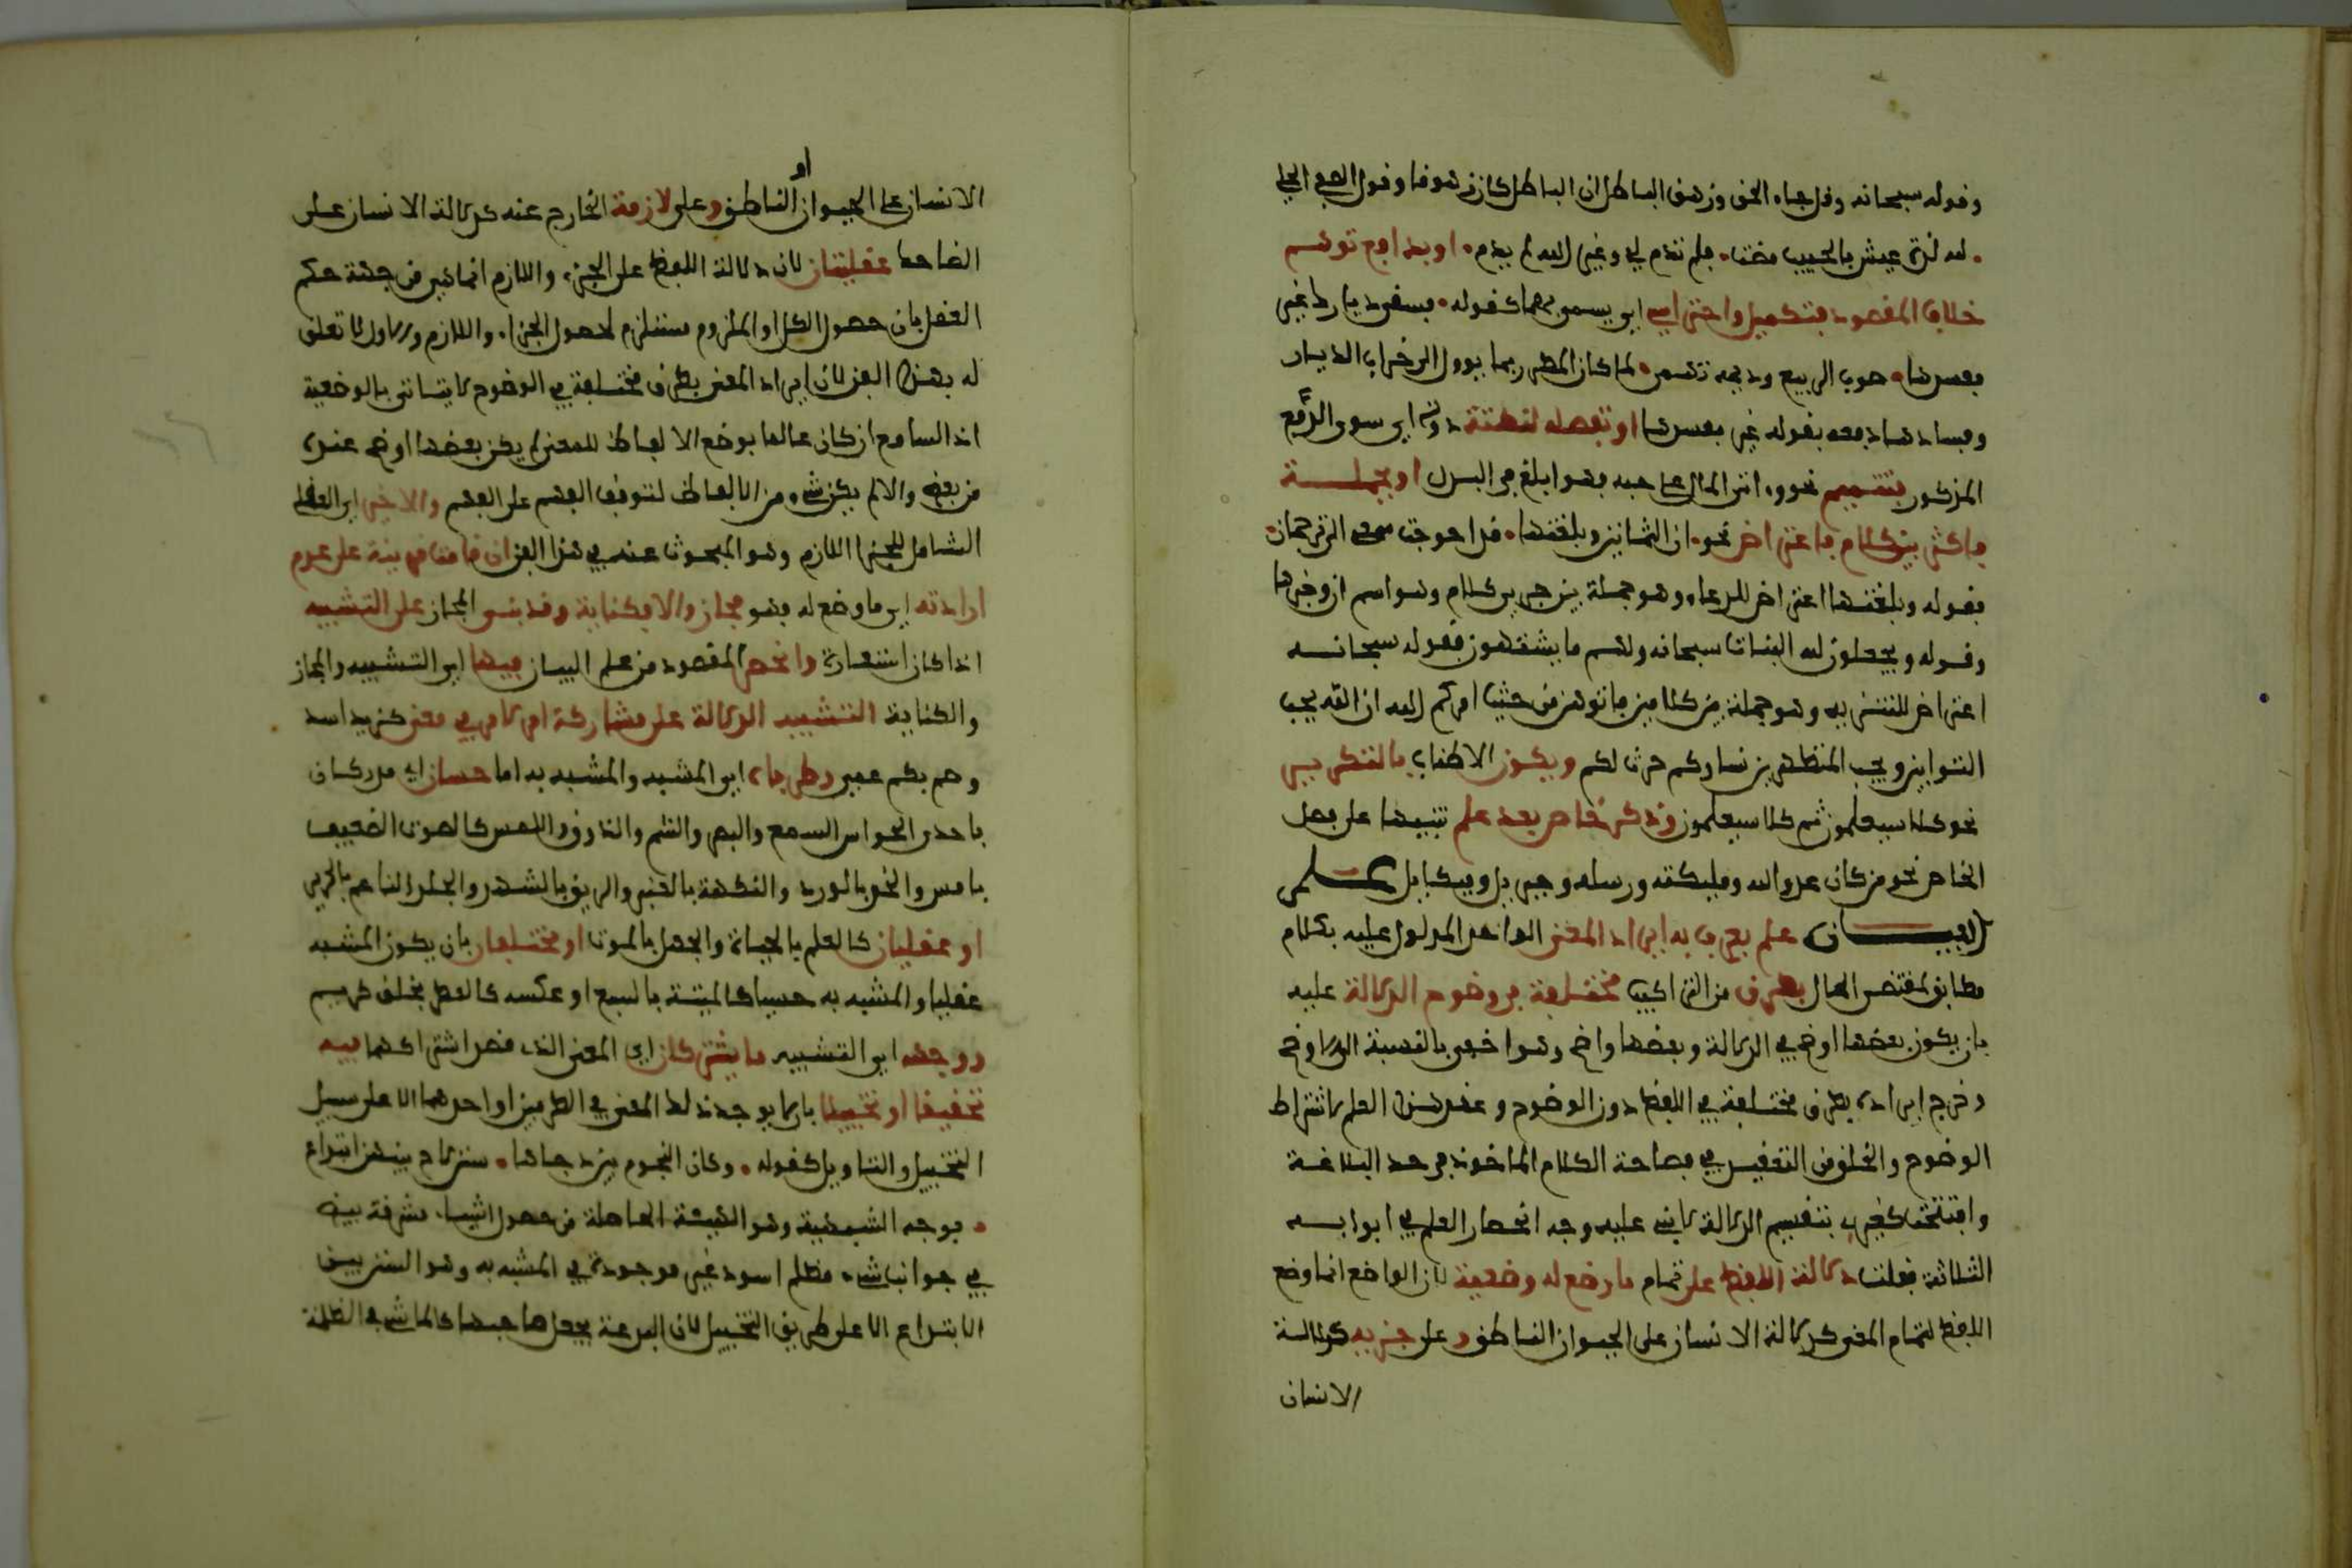 وقوله سبحانه وقل جاء الحق وزهق الباطل ان الباطل كان زهوقا وقول الصفي الحلي
لله لذة عيش بالحبيب مضت فلم تدم لي وغير الله لم يدم او بدافع توهم
خلاف المقصود فتكميل واحتراس اي يسمى بهما كقوله فسقى ديارك غير
مفسدها صوب الربيع وديمة تهمى لما كان المطر ربما يوول الى خراب الديار
وفسادها دفعه بقوله غير مفسدها او بفضلة لنكتة دونه اي سوى الدفع
المذكور فتتميم نحو واتى المال على حبه فهو ابلغ في البذل او بجملة
فاكثر بين كلام فاعتراض نحو ان الثمانين وبلغتها قد احوجت سمعي الى ترجمان
فقوله وبلغتها اعتراض للدعاء وهو جملة بين جزءي كلام وهو اسم ان وخبرها
وقوله ويجعلون لله البنات سبحانه ولهم ما يشتهون فقوله سبحانه
اعتراض للتنزيه وهو جملة بين كلامين فاتوهن من حيث امركم الله ان الله يحب
التوابين ويحب المتطهرين نساوكم حرث لكم ويكون الاطناب بالتكرير
نحو كلا سيعلمون ثم كلا سيعلمون وذكر خاص بعد علم تنبيها على فضل
الخاص نحو من كان عدوا لله ومليكته ورسله وجبريل وميكايل علم
البيان علم يعرف به ايراد المعنى الواحد المدلول عليه بكلام
مطابق لمقتضى الحال بطرق من التراكيب مختلفة في وضوح الدلالة عليه
بان يكون بعضها اوضح في الدلالة وبعضها واضح وهو اخفى بالنسبة الى الاوضح
وخرج ايراده بطرق مختلفة في اللفظ دون الوضوح وعقد هذا العلم لاشتراط
الوضوح والخلو من التعقيد في فصاحة الكلام الماخوذ في حد البلاغة
وافتتحت كغيري بتقسيم الدلالة لابني عليه وجه انحصار العلم في ابوابه
الثلاثة فقلت دلالة اللفظ على تمام ما وضع له وضعية لان الواضع انما وضع
اللفظ لتمام المعنى كدلالة الانسان على الحيوان الناطق وعلى جزيه كدلالة
الانسان
او
الانسان على الحيوان الناطق وعلى لازمه الخارج عنه كدلالة الانسان على
الضاحك عقليتان لان دلالة اللفظ على الجزء واللازم انما هي من جهة حكم
العقل بان حصول الكل او الملزوم مستلزم لحصول الجزء واللازم والاول لا تعلق
له بهذا الفن لان ايراد المعنى بطرق مختلفة في الوضوح لا يتاتى بالوضعية
اذ السامع ان كان عالما بوضع الالفاظ للمعنى لم يكن بعضها اوضح عنده
من بعض والا لم يكن شيء من الالفاظ لتوقف الفهم على الفهم والاخير اي العقلي
الشامل للجزء واللازم وهو المبحوث عنه في هذا الفن ان قامت قرينة على عدم
ارادته اي ما وضع له فهو مجاز والا فكناية وقد يبنى المجاز على التشبيه
اذا كان استعارة وانحصر المقصود من علم البيان فيها اي التشبيه والمجاز
والكناية التشبيه الدلالة على مشاركة امر لامر في معنى كزيد اسد
وصم بكم عمي وطرفاه اي المشبه والمشبه به اما حسيان اي مدركان
باحدى الحواس السمع والبصر والشم والذوق واللمس كالصوت الضعيف
بالهمس والخد بالورد والنكهة بالعنبر والريق بالشهد والجلد الناعم بالحرير
او عقليان كالعلم بالحياة والجهل بالموت او مختلفان بان يكون المشبه
عقليا والمشبه به حسيا كالمنية بالسبع او عكسه كالعطر بخلق كريم
ووجهه اي التشبيه ما يشتركان اي المعنى الذي قصد اشتراكهما فيه
تحقيقا او تخييلا بان لا يوجد ذلك المعنى في الطرفين او احدهما الا على سبيل
التخييل والتاويل كقوله وكان النجوم بين دجاها سنن لاح بينهن ابتداع
فوجه الشبه فيه وهو الهيئة الحاصلة من حصول اشياء مشرقة بيض
في جوانب شيء مظلم اسود غير موجودة في المشبه به وهو السنن بين
الابتداع الا على طريق التخييل لان البدعة تجعل صاحبها كالماشي في الظلمة